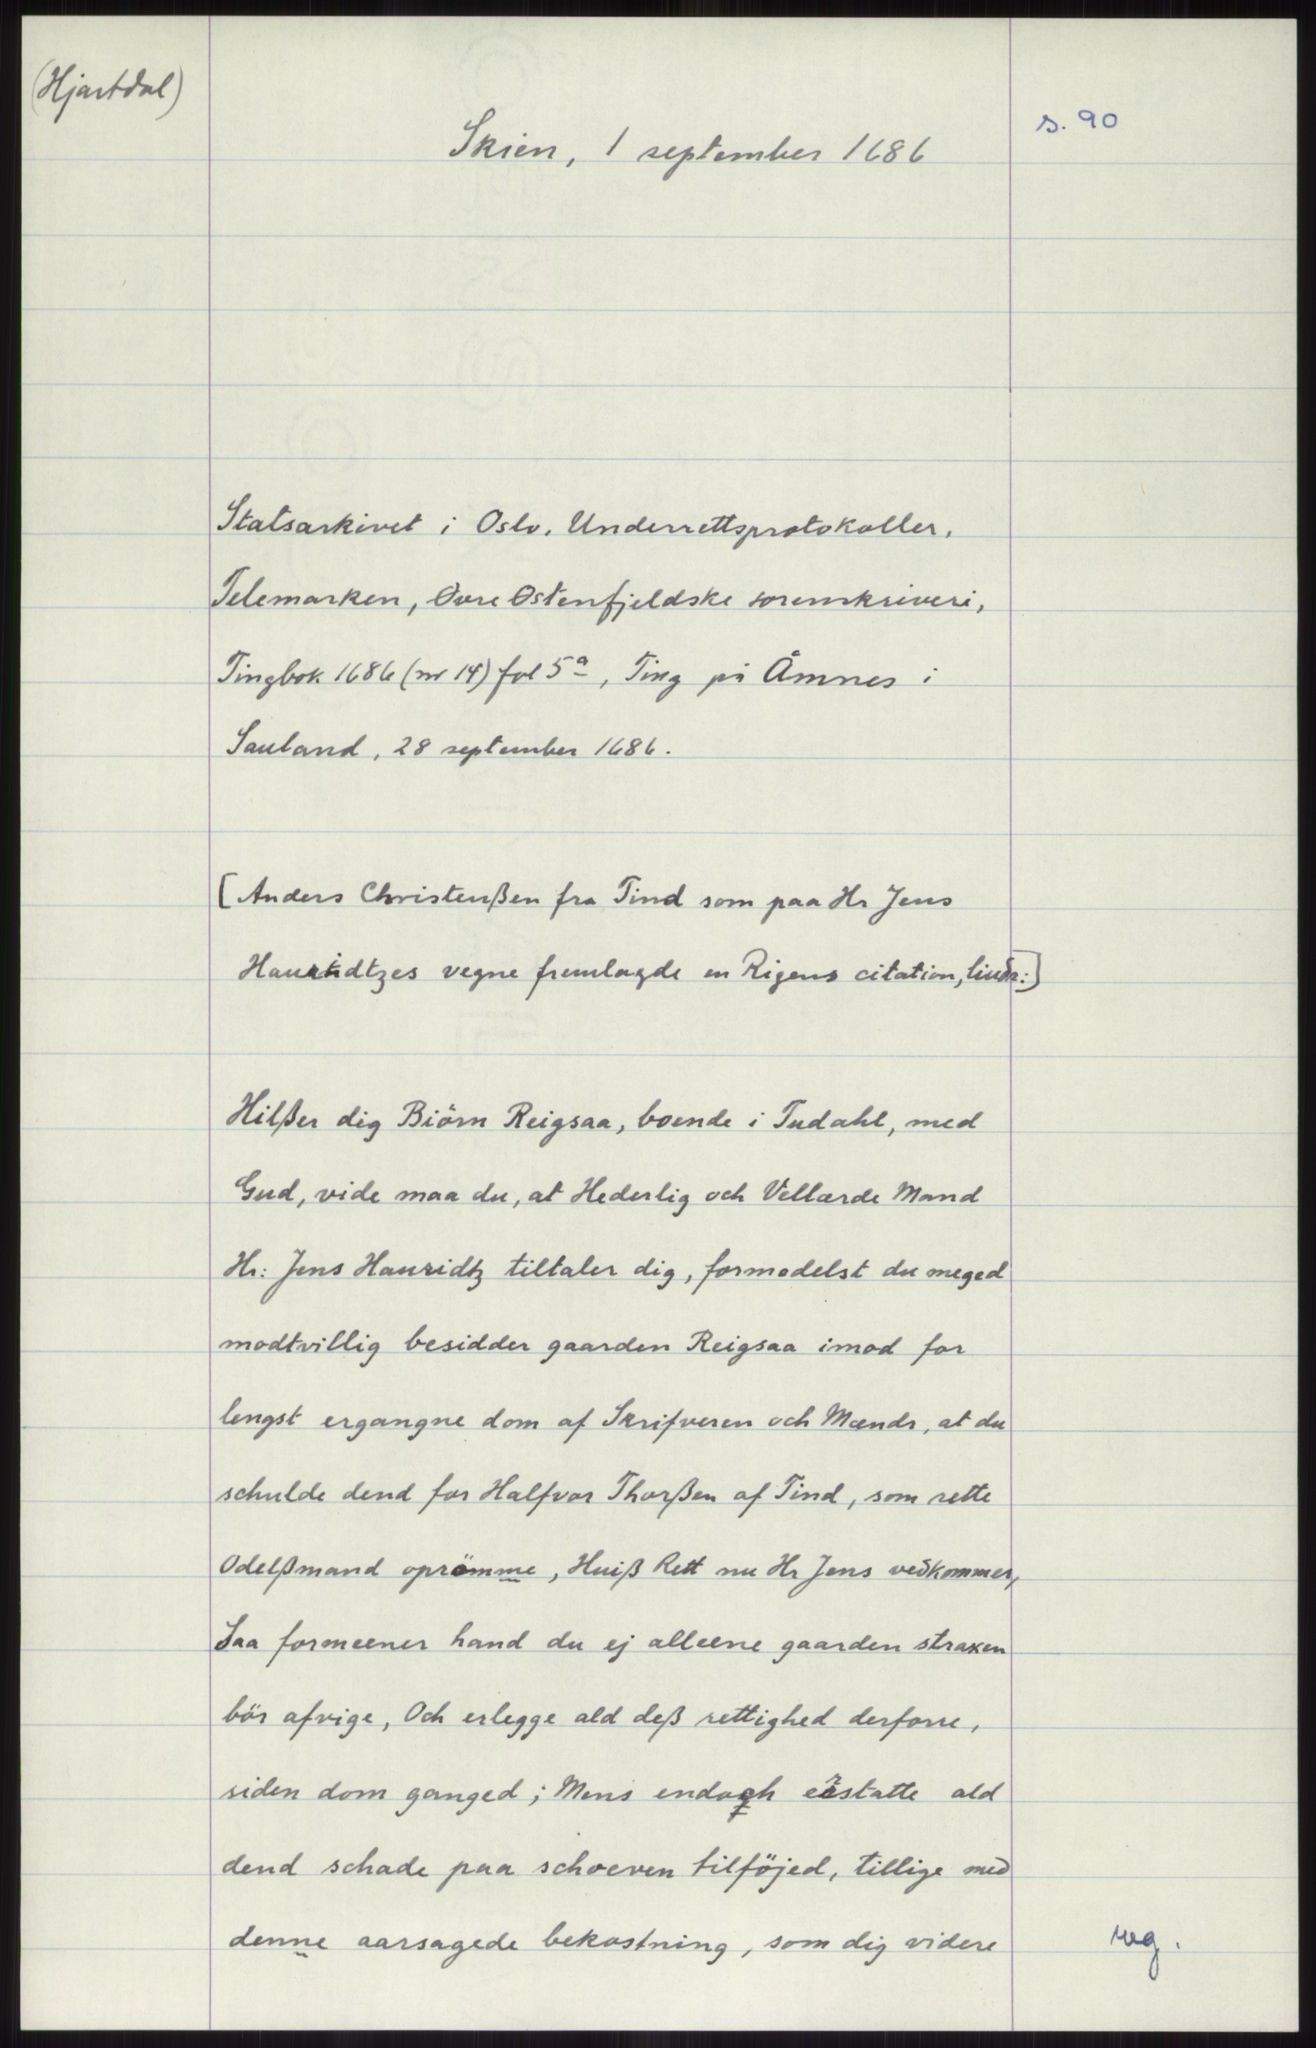 (Hjartdal)
s. 90
Skien, 1 september 1686
Statsarkivet i Oslo. Underrettsprotokoller,
Telemarken, Øvre Østenfjeldske sorenskriveri,
Tingbok 1686 (nr 14) fol 5a, Ting på Åmnes i
Sauland, 28 september 1686.
[Anders Christenßen fra Tind som paa Hr Jens
Hauridtzes vegne fremlagde en Rigens citation, liudr:]
Hilßer dig Biörn Reigsaa, boende i Tudahl, med
Gud, vide maa du, at Hederlig och Vellærde Mand
Hr: Jens Hauridtz tiltaler dig, formodelst du meged
modtvillig besidder gaarden Reigsaa imod for
lengst ergangne dom af Skrifveren och Mændr, at du
schulde dend for Halfvor Thorßen af Tind, som rette
Odelßmand oprömme, Huiß Rett nu Hr Jens vedkommer,
Saa formeener hand du ej alleene gaarden straxen
bör afvige, Och erlegge ald deß rettighed derforre,
siden dom ganged; Mens endogh erstatte ald
dend schade paa schoeven tilföjed, tillige med
denne aarsagede bekostning, som dig videre
reg.